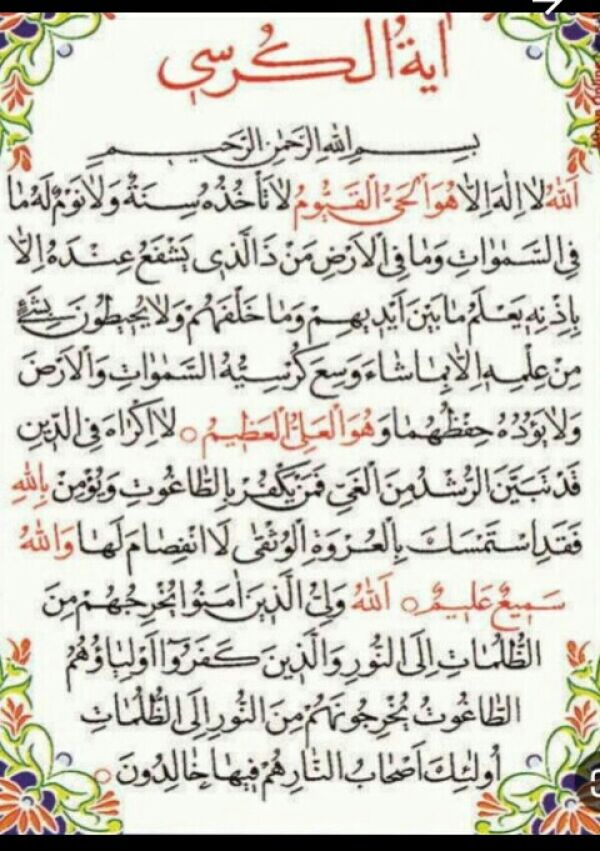 اية الكرسي
بسم الله الرحمن الرحيم
اَللهُ لَا اِلٰهَ اِلَّا هُوَ الْحَىُّ الْقَيُّومُ لَا تَأْخُذُهُ سِنَةٌ وَلَا نَوْمٌ لَهُ مَا
فِى السَّمٰوَاتِ وَمَا فِى الْاَرْضِ مَنْ ذَا الَّذِى يَشْفَعُ عِنْدَهُ اِلَّا
بِاِذْنِهِ يَعْلَمُ مَا بَيْنَ اَيْدِيهِمْ وَمَا خَلْفَهُمْ وَلَا يُحِيطُونَ بِشَىْءٍ
مِنْ عِلْمِهِ اِلَّا بِمَا شَاءَ وَسِعَ كُرْسِيُّهُ السَّمٰوَاتِ وَالْاَرْضَ
وَلَا يَؤُدُهُ حِفْظُهُمَا وَهُوَ الْعَلِىُّ الْعَظِيمُ ○ لَا اِكْرَاهَ فِى الدِّينِ
قَدْ تَبَيَّنَ الرُّشْدُ مِنَ الْغَىِّ فَمَنْ يَكْفُرْ بِالطَّاغُوتِ وَيُؤْمِنْ بِاللهِ
فَقَدِ اسْتَمْسَكَ بِالْعُرْوَةِ الْوُثْقٰى لَا انْفِصَامَ لَهَا وَاللهُ
سَمِيعٌ عَلِيمٌ ○ اَللهُ وَلِىُّ الَّذِينَ اٰمَنُوا يُخْرِجُهُمْ مِنَ
الظُّلُمَاتِ اِلَى النُّورِ وَالَّذِينَ كَفَرُوا اَوْلِيَاؤُهُمُ
الطَّاغُوتُ يُخْرِجُونَهُمْ مِنَ النُّورِ اِلَى الظُّلُمَاتِ
اُولٰئِكَ اَصْحَابُ النَّارِ هُمْ فِيهَا خَالِدُونَ ○